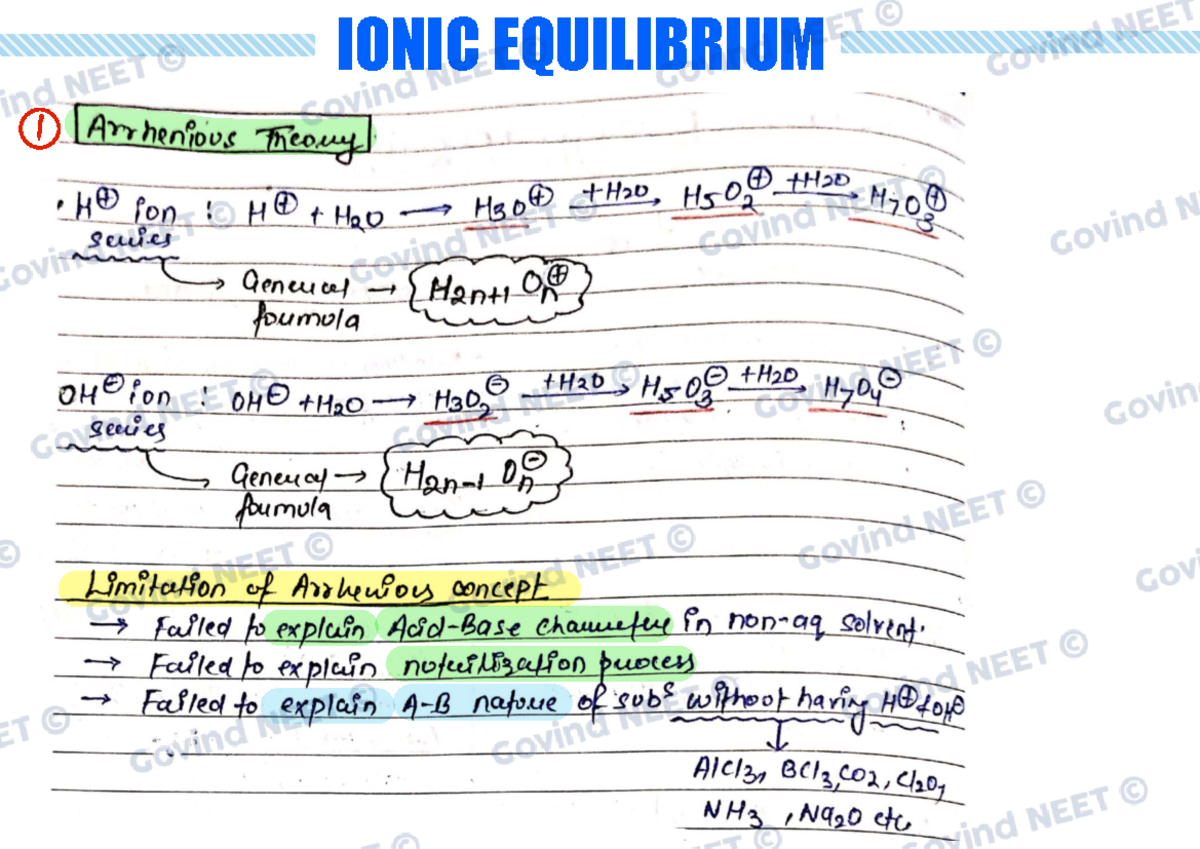 IONIC EQUILIBRIUM
① Arrhenious Theory
• H⊕ ion : H⊕ + H2O ⟶ H3O⊕ +H2O⟶ H5O2⊕ +H2O⟶ H7O3⊕
series
→ General → H2n+1 On⊕
formula
OH⊖ ion : OH⊖ + H2O ⟶ H3O2⊖ +H2O⟶ H5O3⊖ +H2O⟶ H7O4⊖
series
→ General → H2n-1 On⊖
formula
Limitation of Arrhenious concept
→ Failed to explain Acid-Base character in non-aq solvent.
→ Failed to explain notulization process
→ Failed to explain A-B nature of subs without having H⊕ & OH⊖
↓
AlCl3, BCl3, CO2, Cl2O,
NH3, Na2O etc
Govind NEET ©